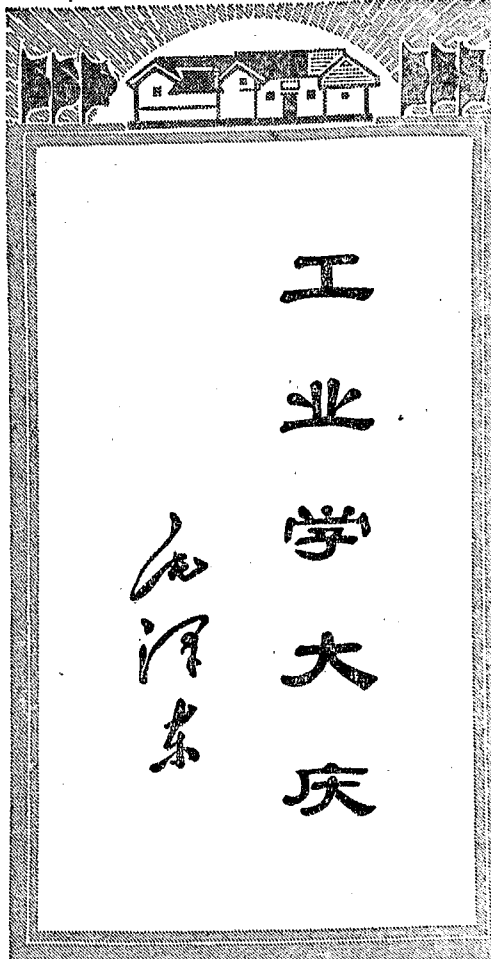 工业学大庆
毛泽东